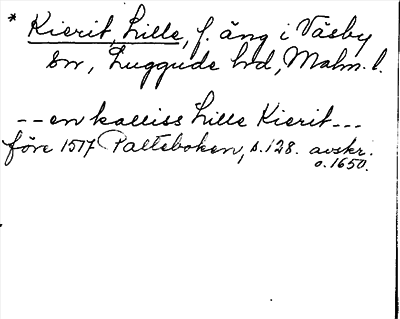 * Kierit, Lille, f. äng i Väsby
sn, Luggude hd, Malm. l.
-- en kalliss Lille Kierit ---
före 1517 Palteboken, s. 128. avskr.
o. 1650.